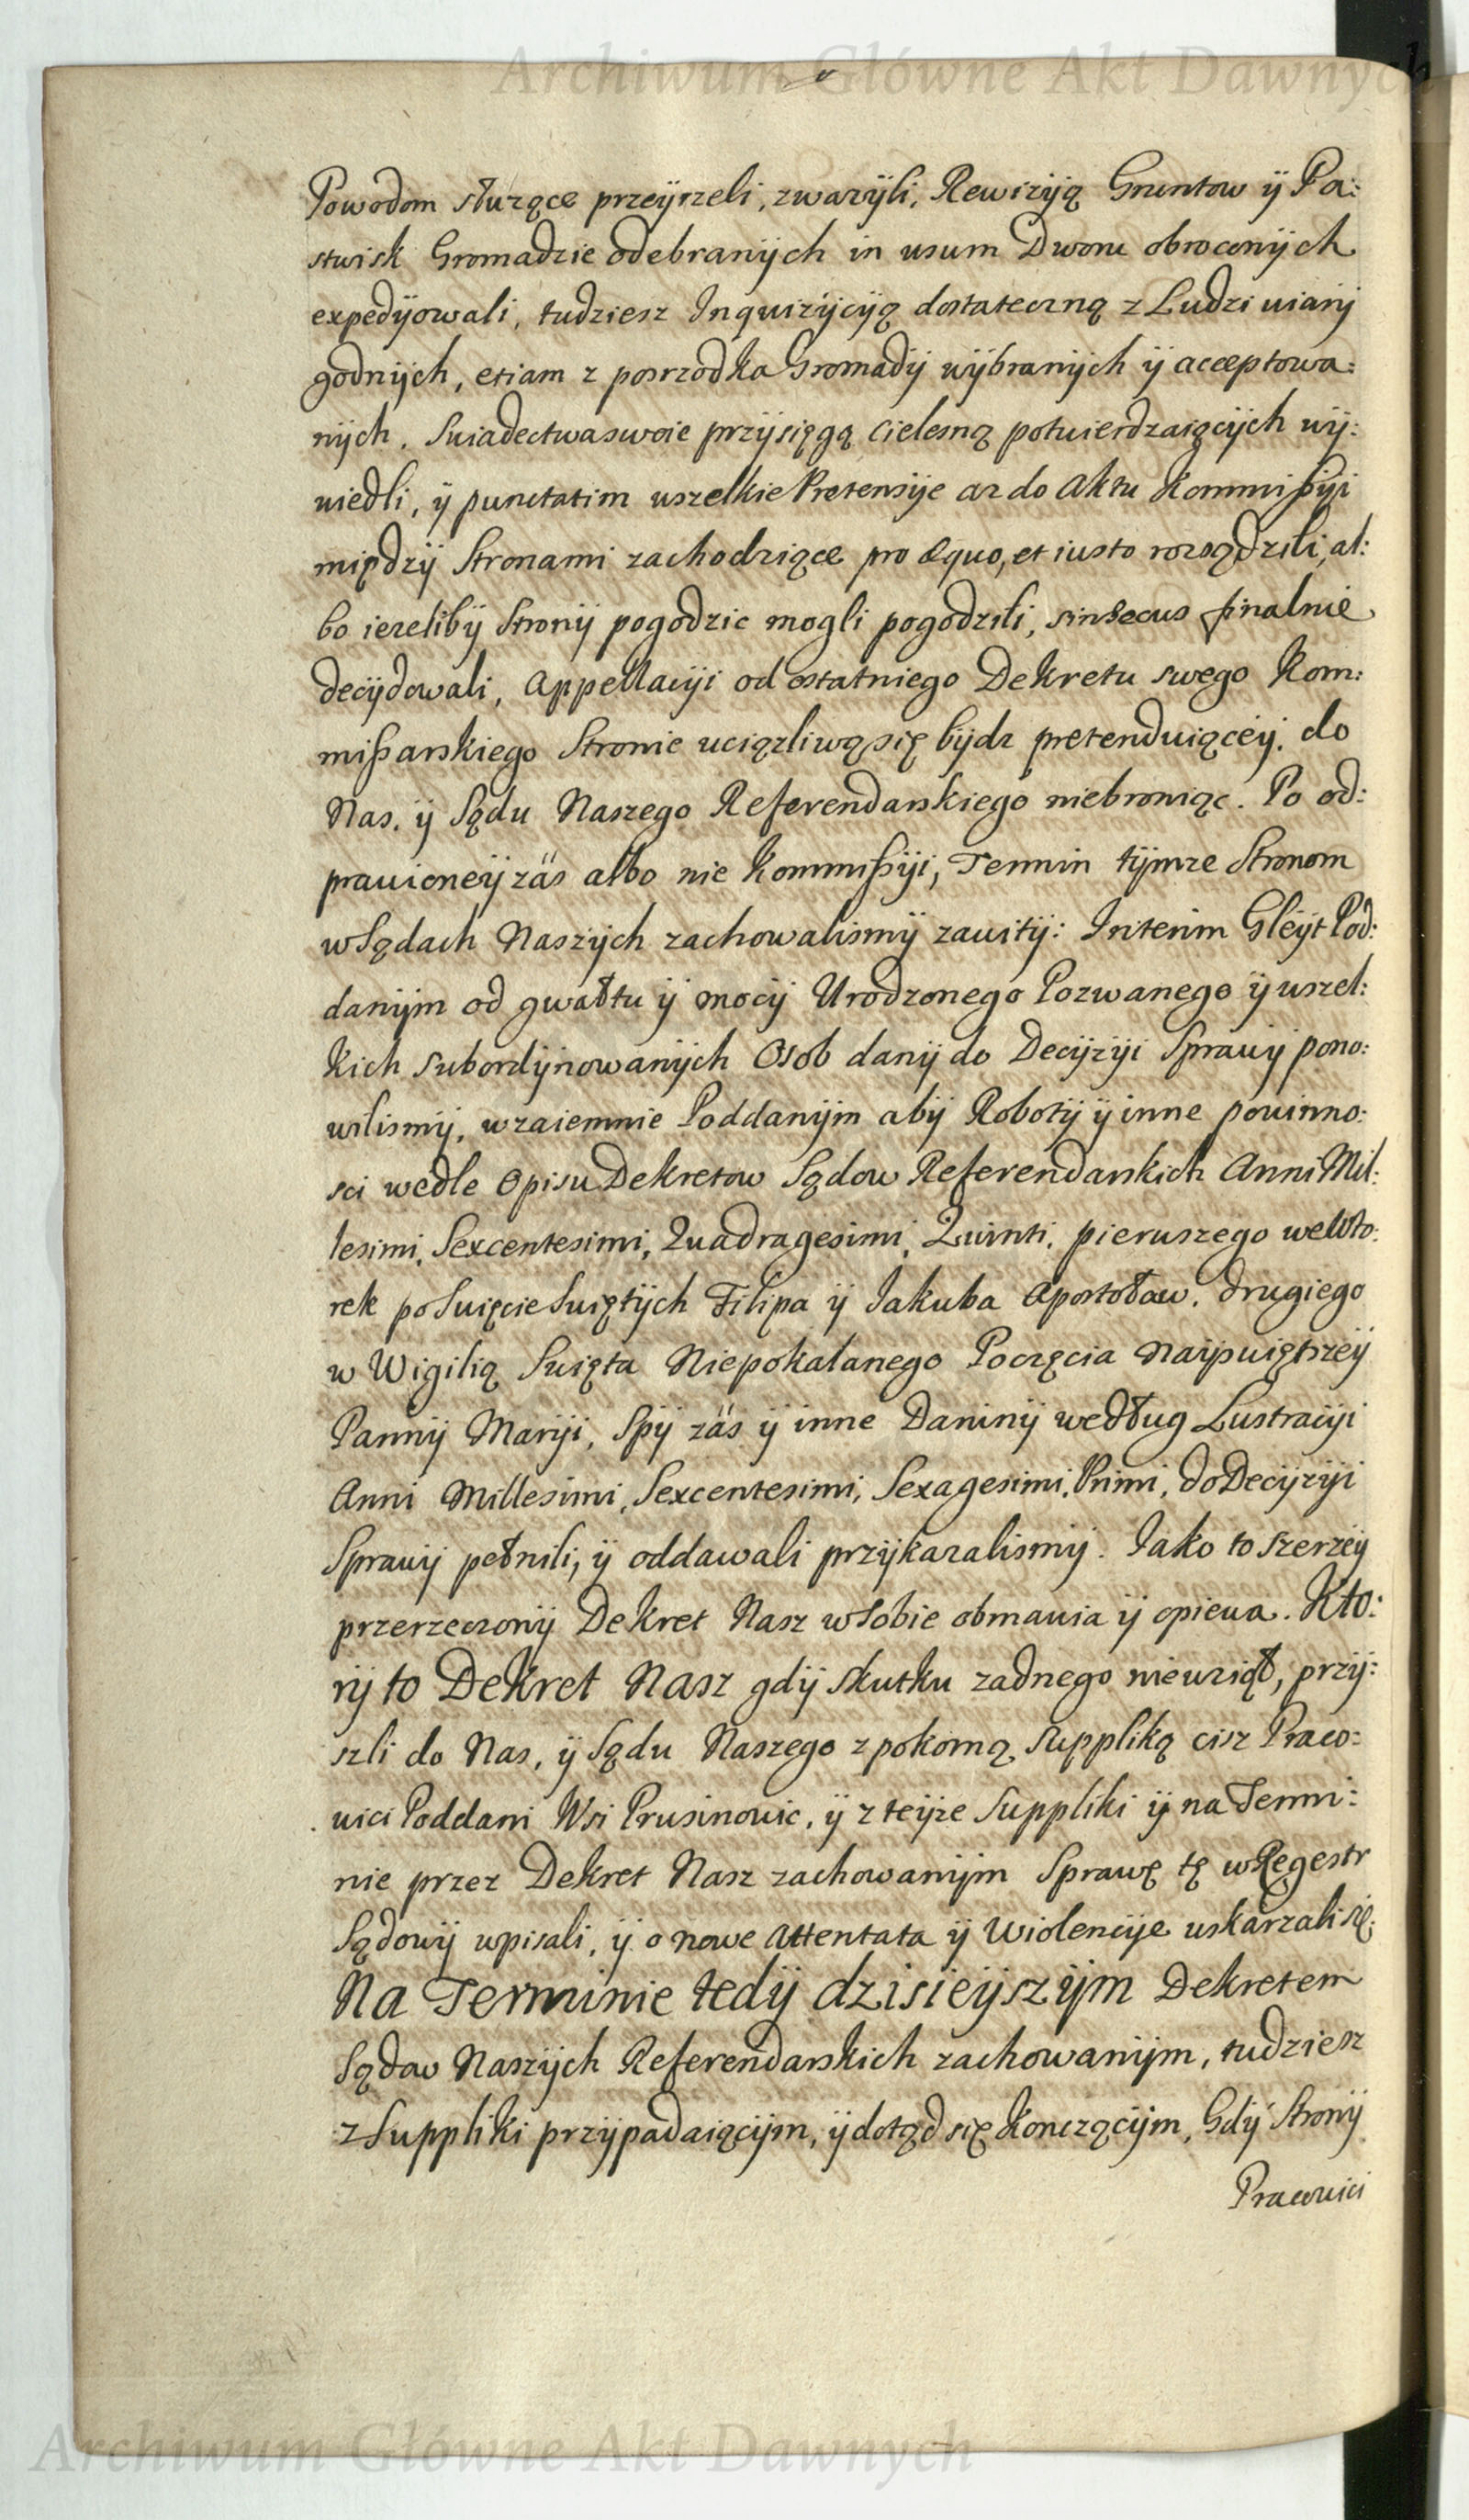 Archiwum Główne Akt Dawnych
Powodom słuzące przeÿrzeli, zwazÿli, Rewizÿią Gruntow ÿ Pa:
stwisk Gromadzie odebranÿch in usum Dworu obroconÿch
expedÿowali, tudziesz Inquizÿcÿą dostateczną z Ludzi wiarÿ
godnÿch, etiam z posrzodka Gromadÿ wÿbranÿch ÿ acceptowa:
nÿch, swiadectwa swoie przÿsięgą cielesną potwierdzaiącÿch wÿ:
wiedli, ÿ punctatim wszelkie Pretensÿe az do Aktu Kommißÿi
międzÿ Stronami zachodziące pro æquo, et iusto rozsądzili, al:
bo iezelibÿ Stronÿ pogodzic mogli pogodzili, sin secus finalnie
decÿdowali, Appellacÿi od ostatniego Dekretu swego Kom:
mißarskiego Stronie uciązliwą się bÿdz pretenduiąceÿ, do
Nas, ÿ Sądu Naszego Referendarskiego niebroniąc. Po od:
prawioneÿ zäs albo nie Kommißÿi, Termin tÿmze Stronom
w Sądach Naszÿch zachowalismÿ zawitÿ: Interim Gleÿt Pod:
danÿm od gwałtu ÿ mocÿ Urodzonego Pozwanego ÿ wszel:
kich subordÿnowanÿch Osob danÿ do Decÿzÿi Sprawÿ pono:
wilismÿ, wzaiemnie Poddanÿm abÿ Robotÿ ÿ inne powinno:
sci wedle Opisu Dekretow Sądow Referendarskich Anni Mil:
lesimi, Sexcentesimi, Quadragesimi, Quinti, pierwszego we Wto:
rek po Swięcie Swiętÿch Filipa ÿ Jakuba Apostołow, drugiego
w Wigilią Swięta Niepokalanego Poczęcia Naÿswiętszeÿ
Pannÿ Marÿi, Spÿ zäs ÿ inne Daninÿ według Lustracÿi
Anni Millesimi, Sexcentesimi, Sexagesimi, Primi, do Decÿzÿi
Sprawÿ pełnili, ÿ oddawali przÿkazalismÿ. Jako to szerzeÿ
przerzeczonÿ Dekret Nasz w Sobie obmawia ÿ opiewa. Kto:
rÿ to Dekret Nasz gdÿ skutku zadnego nie wziął, przÿ:
szli do Nas, ÿ Sądu Naszego z pokorną Suppliką cisz Praco:
wici Poddani Wsi Prusinowic, ÿ z teÿze Suppliki ÿ na Termi:
nie przez Dekret Nasz zachowanÿm Sprawę tę w Regestr
Sądowÿ wpisali, ÿ o nowe Attentata ÿ Wiolencÿe uskarzali się.
Na Terminie tedÿ dzisieÿszÿm Dekretem
Sądow Naszÿch Referendarskich zachowanÿm, tudziesz
z Suppliki przÿpadaiącÿm, ÿ dotąd się konczącÿm, Gdÿ Stronÿ
Pracowici
Archiwum Główne Akt Dawnych